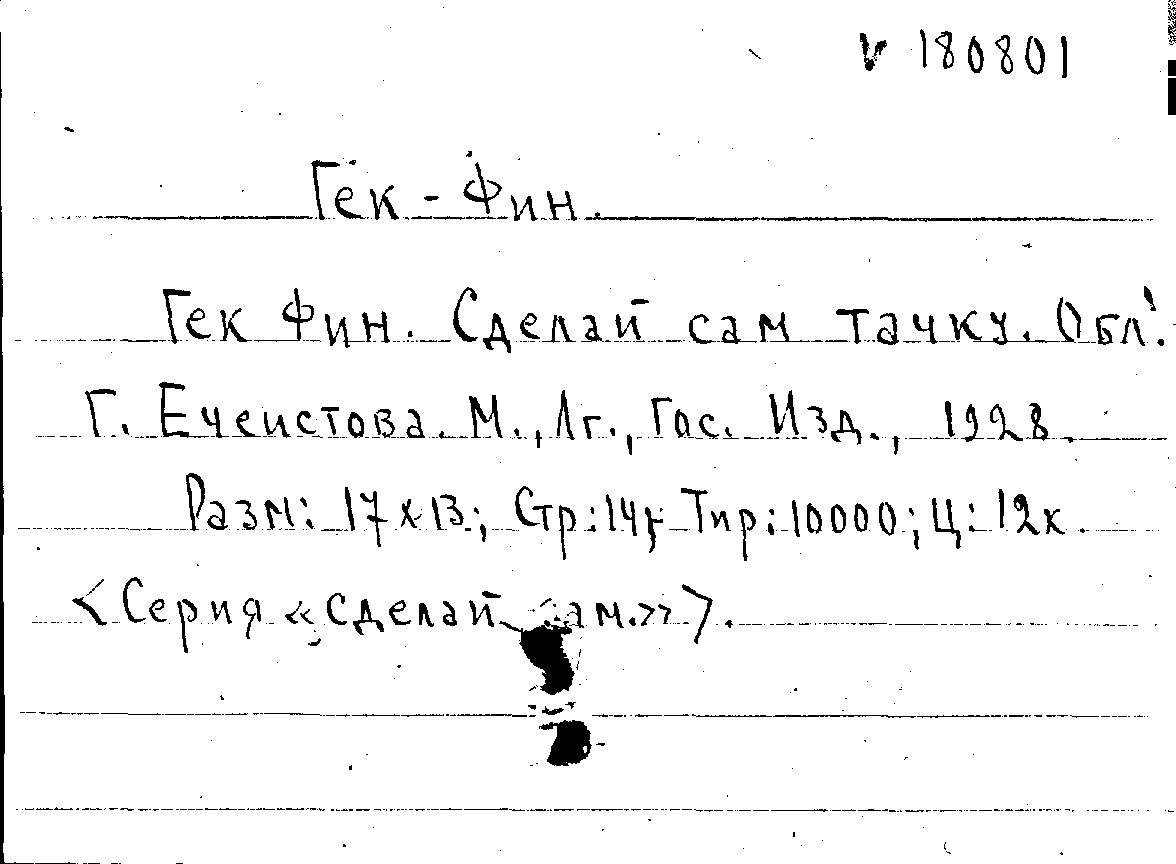 v 180801
Гек - Фин.
Гек Фин. Сделай сам тачку. Обл.:
Г. Ечеистова. М., Лг., Гос. Изд., 1928.
Разм: 17 x 13; Стр: 14; Тир: 10000; Ц: 12к.
<Серия «сделай сам.»>.